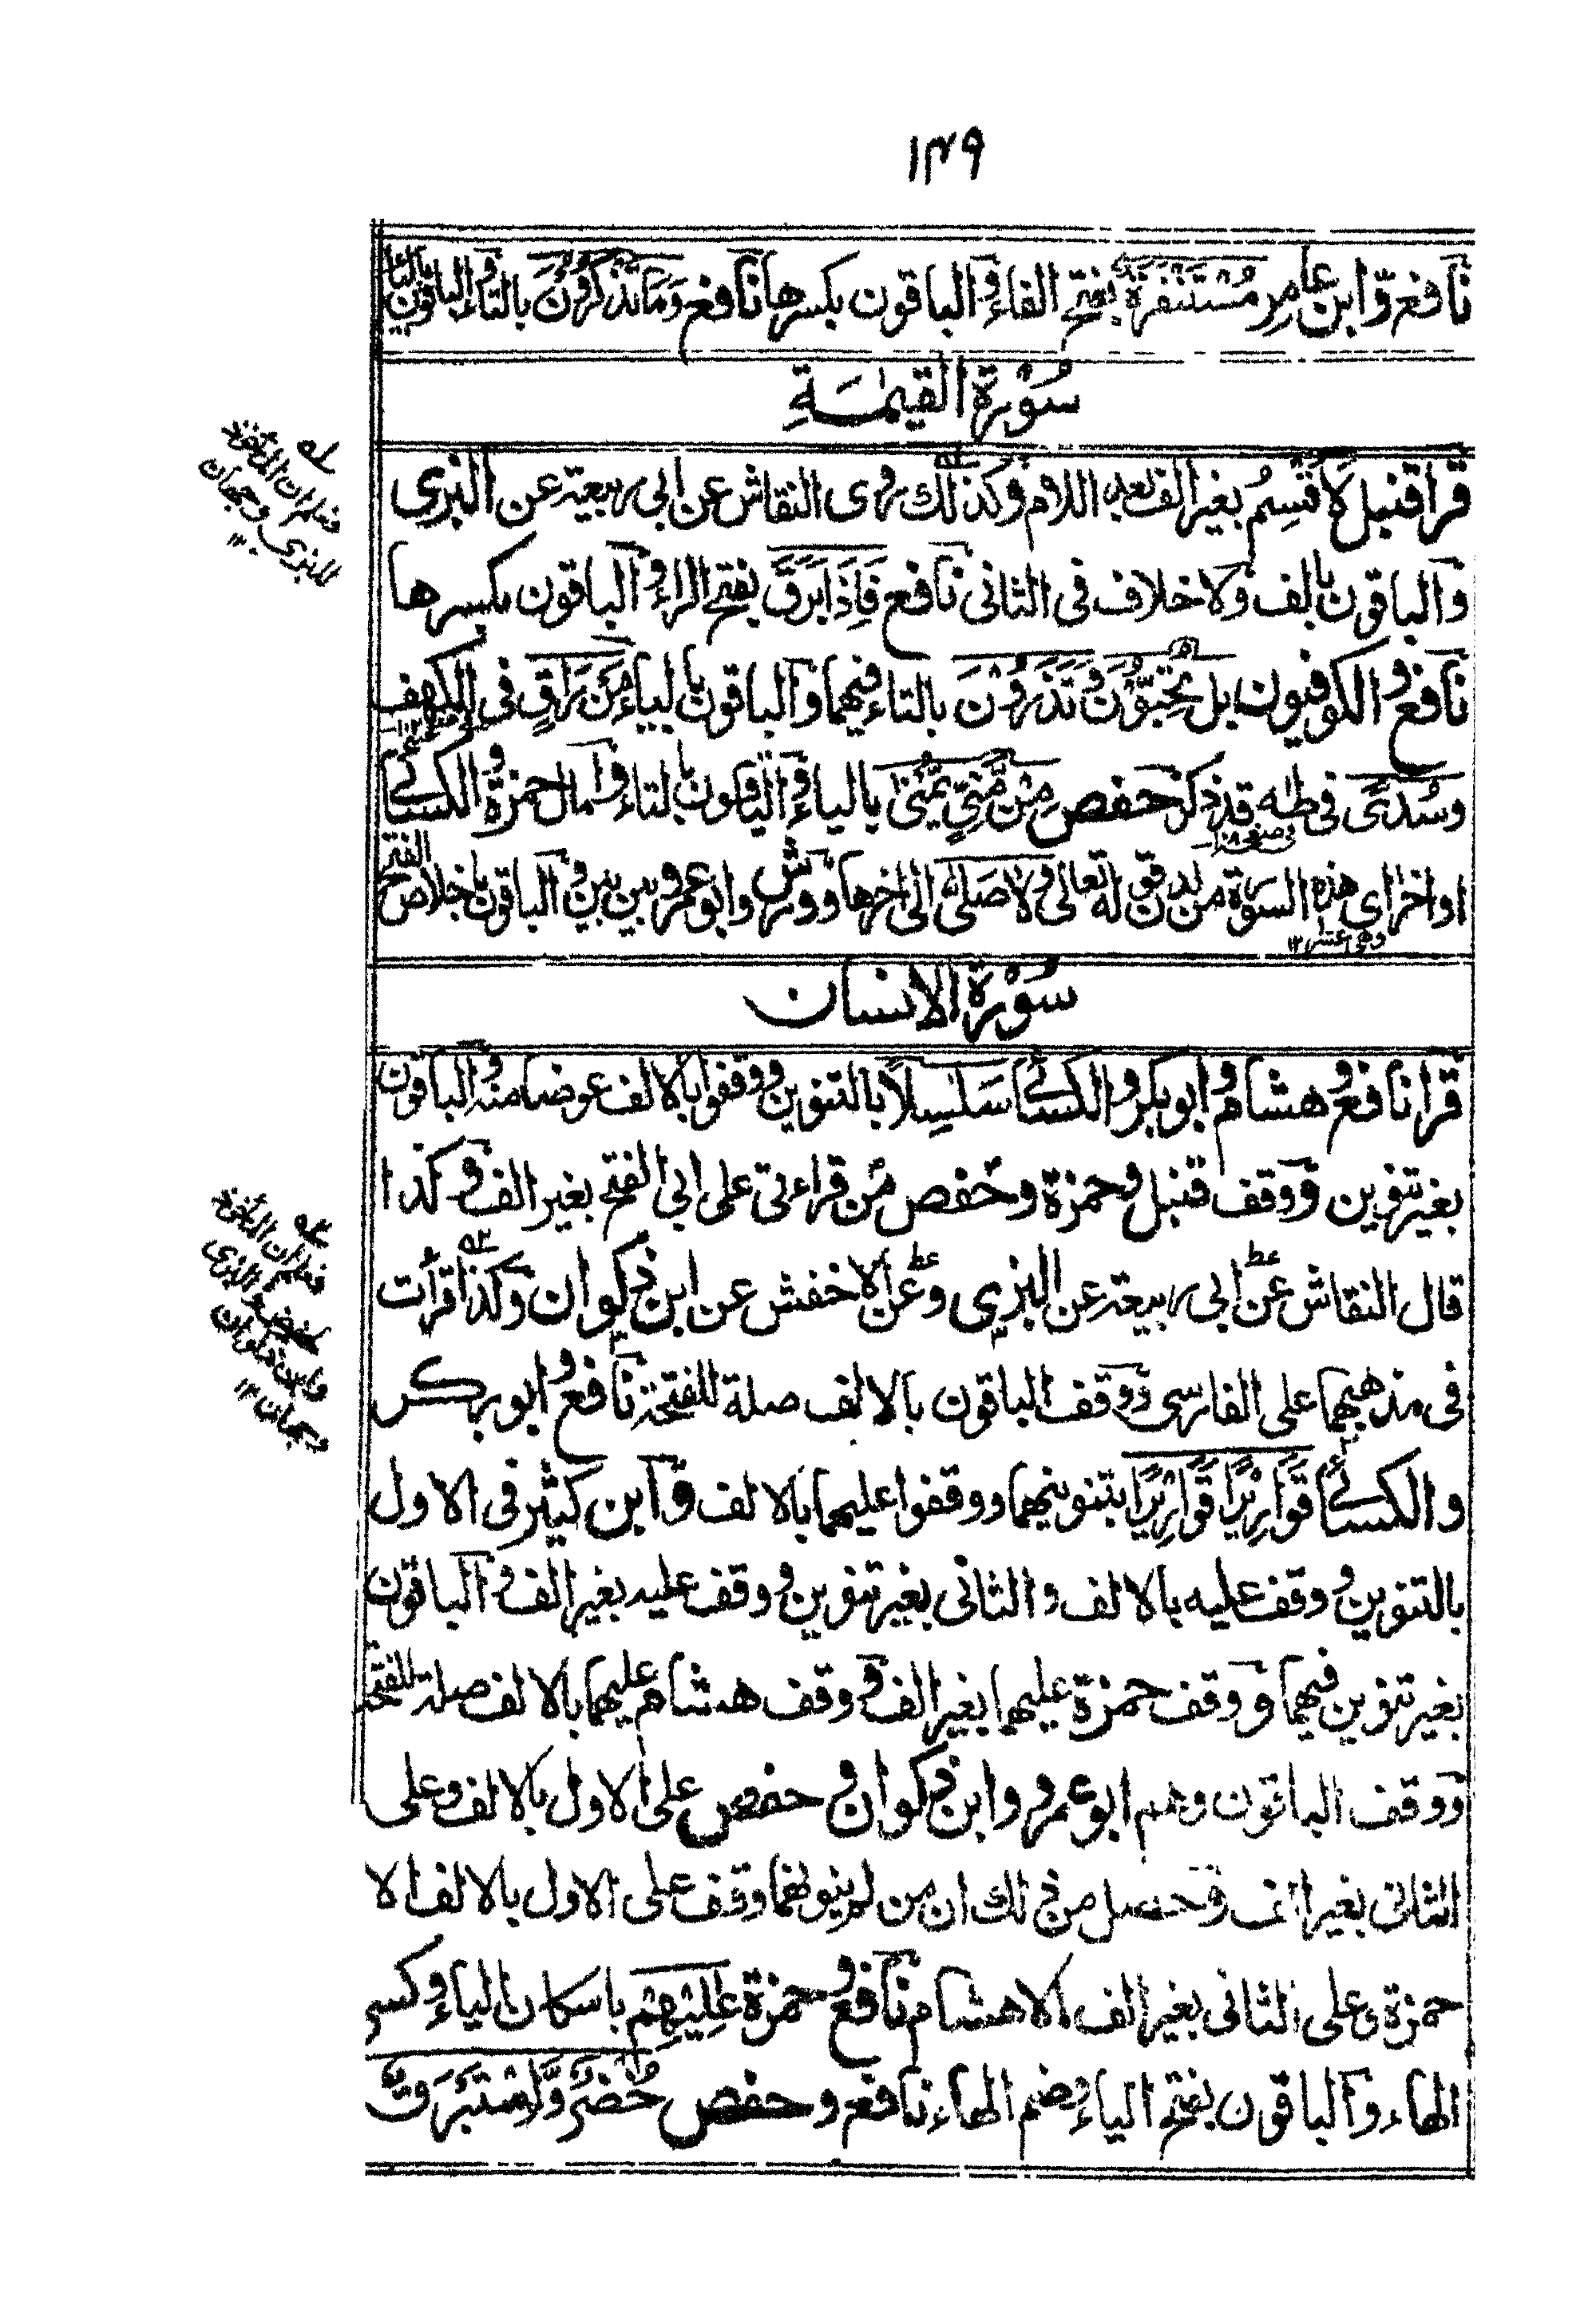 ۱۴۹
نافع وّابن عامر مُسْتَنْفَرَةٌ بفتح الفاء والباقون بكسرها نافع وَمَا تَذْكُرُوْنَ بالتاء والباقون بالياء
سُوْرة القيٰمَةِ
قرا قنبل لَأُقْسِمُ بغير الف بعد اللام وكذلك روى النقاش عن ابى ربيعة عن البزى
والباقون بالف ولا خلاف فى الثانى نافع فَاِذَا بَرَقَ بفتح الراء والباقون بكسرها
نافع والكوفيون بل تُحِبُّوْنَ وَتَذَرُوْنَ بالتاء فيهما والباقون بالياء مَنْ رَاقٍ فى الكهف
وسُدًى فى طه قد ذكر حفص مِنْ مَّنِيٍّ يُّمْنٰى بالياء والباقون بالتاء وامال حمزة والكسائے
فى صفحه
اواخر اى هذه السورة من لدن قوله تعالى ولا صَلّٰى الى اخرها وورش وابو عمرو بين بين والباقون باخلاص الفتح
سُوْرة الانسان
قرا نافع وهشام وابوبكر والكسائے سَلٰسِلًا بالتنوين ووقفوا بالالف عوضا منه والباقون
بغير تنوين ووقف قنبل وحمزة وحفص من قراءتى على ابى الفتح بغير الف وكذا
قال النقاش عن ابى ربيعة عن البزى وعن الاخفش عن ابن ذكوان وكذا قرأت
فى مذهبهما على الفارسى ووقف الباقون بالالف صلة للفتحة نافع وابوبكر
والكسائے قَوَارِيْرًا قَوَارِيْرًا بتنوينهما ووقفوا عليهما بالالف وابن كثير فى الاول
بالتنوين ووقف عليه بالالف والثانى بغير تنوين ووقف عليه بغير الف والباقون
بغير تنوين فيهما ووقف حمزة عليهما بغير الف ووقف هشام عليهما بالالف صلة للفتحة
ووقف الباقون وهم ابو عمرو وابن ذكوان وحفص على الاول بالالف وعلى
الثانى بغير الف وحصل من ذلك ان من لم ينونهما وقف على الاول بالالف الا
حمزة وعلى الثانى بغير الف الا هشام نافع وحمزة عٰلِيْهِمْ باسكان الياء وكسر
الهاء والباقون بفتح الياء وضم الهاء نافع وحفص خُضْرٌ وَّاِسْتَبْرَقٌ
فعلم ان الماخوذ
للبزى وجهان
فعلم ان الماخوذ
لحفص والبزى
وابن ذكوان
وجهان ۱۲